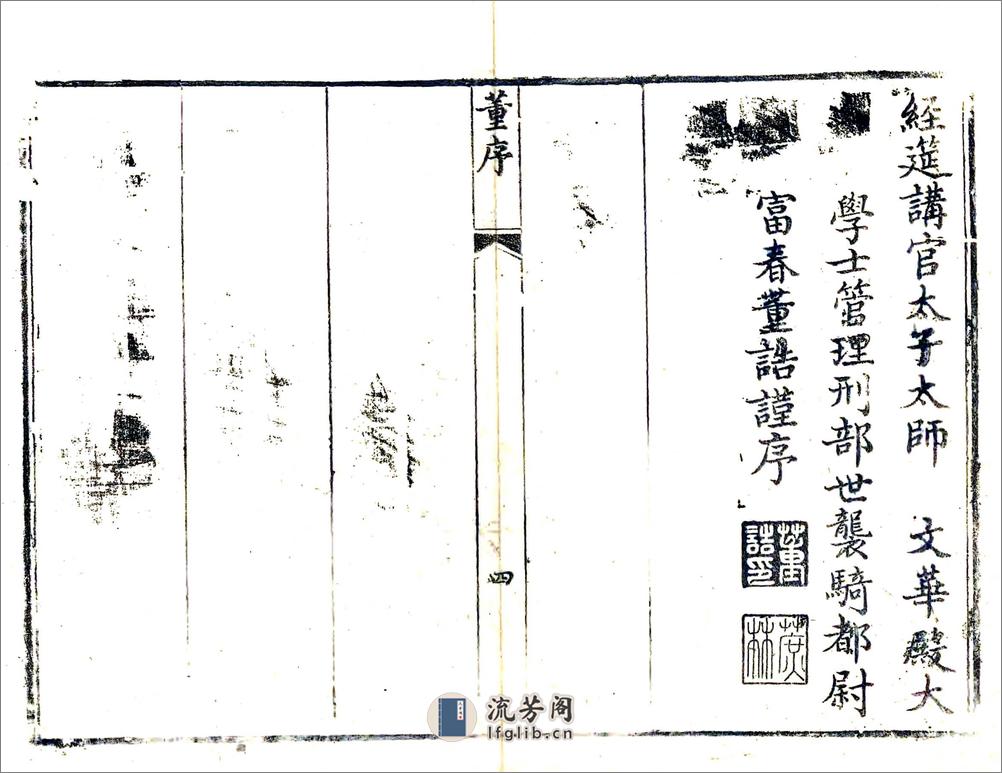 經筵講官太子太師　文華殿大
學士管理刑部世襲騎都尉
富春董誥謹序
董誥印
蔗林
董序
四
流芳阁
lfglib.cn